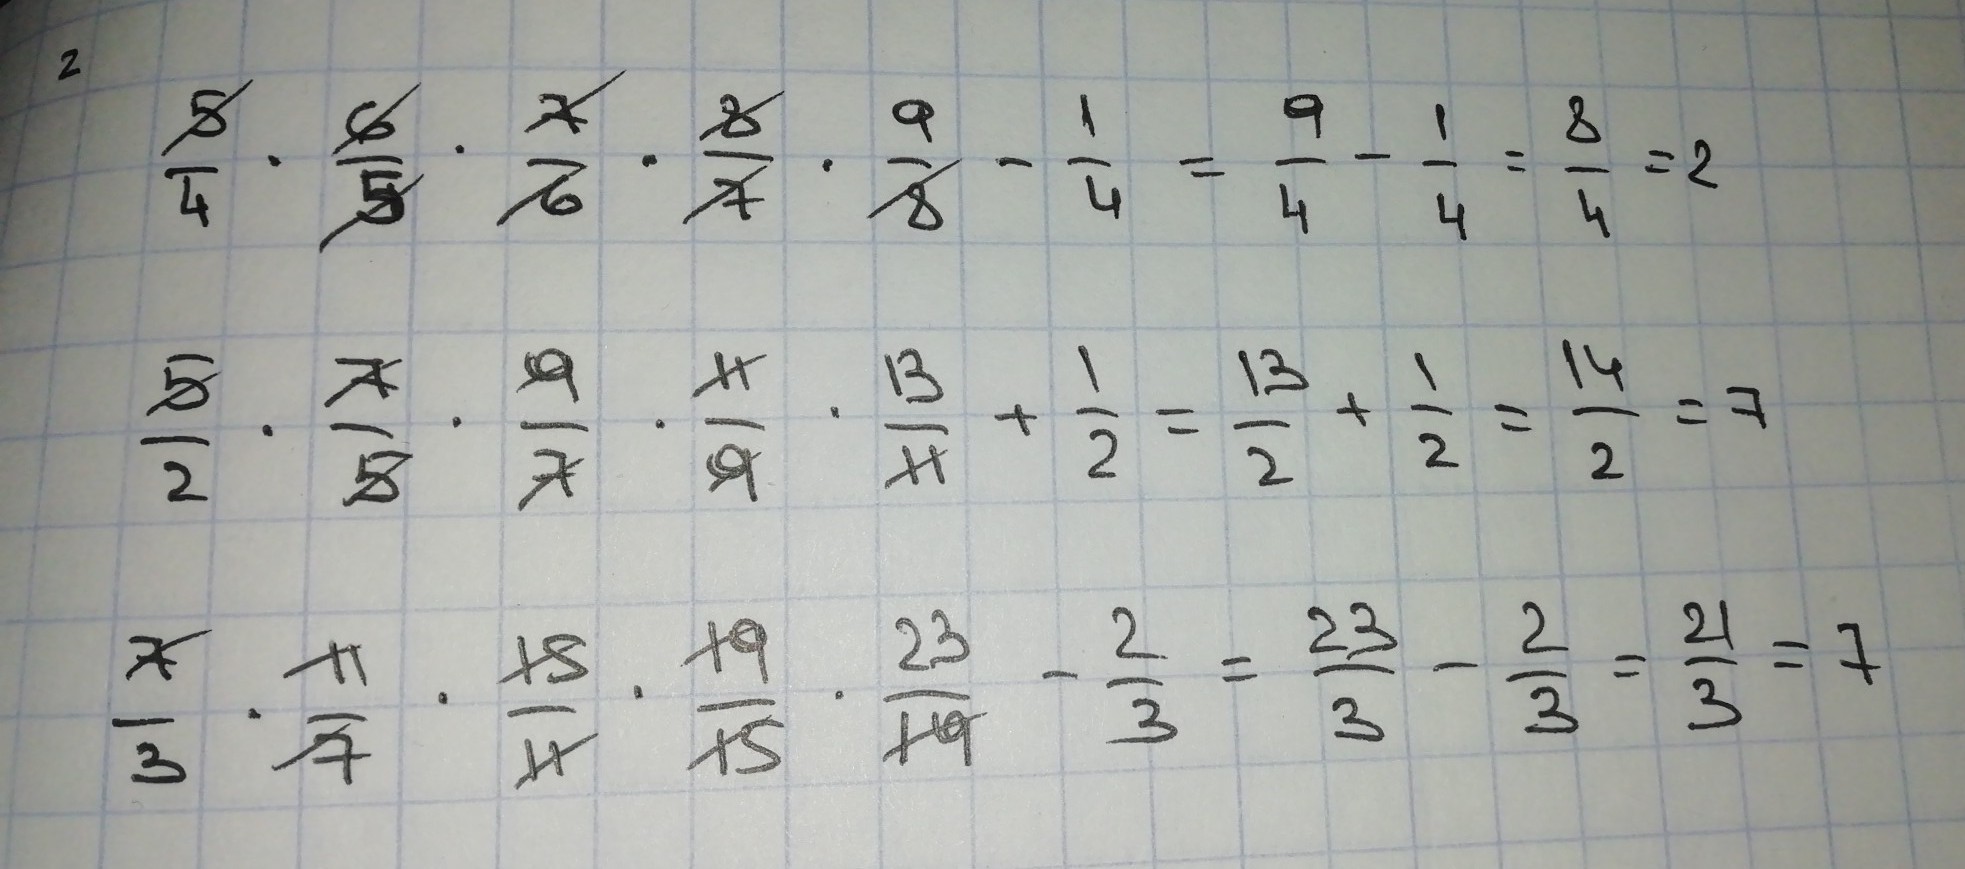 2
5/4 · 6/5 · 7/6 · 8/7 · 9/8 - 1/4 = 9/4 - 1/4 = 8/4 = 2
5/2 · 7/5 · 9/7 · 11/9 · 13/11 + 1/2 = 13/2 + 1/2 = 14/2 = 7
7/3 · 11/7 · 15/11 · 19/15 · 23/19 - 2/3 = 23/3 - 2/3 = 21/3 = 7